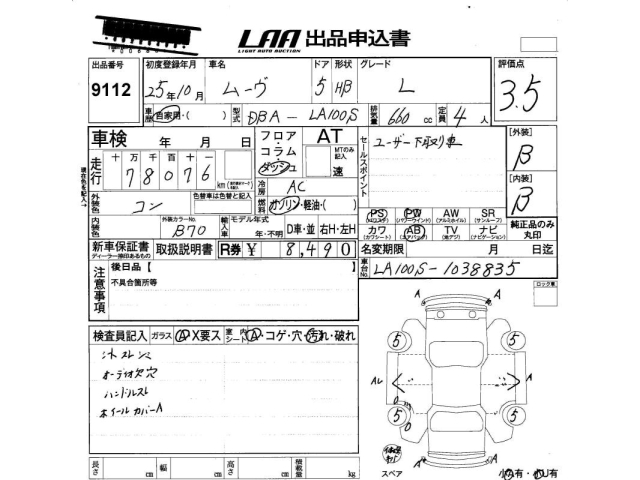 LAA 出品申込書
LIGHT AUTO AUCTION
出品番号 初度登録年月 車名 ドア 形状 グレード 評価点
9112 25年10月 ムーヴ 5 HB L 3.5
車歴 自家用・( ) 型式 DBA-LA100S 排気量 660 cc 定員 4人
車検 年 月 日
フロア・コラム・ダッシュ
AT
MTのみ記入
速
セールスポイント
ユーザー下取り車
[外装]
B
[内装]
B
走行 十 万 千 百 十 一
78076 km
冷房 AC
燃料 ガソリン・軽油・( )
外装色 コン
色替車は色替と記入
内装色
外装カラーNo.
B70
輸入車 モデル年式
年・不明 D車・並 右H・左H
PS PW AW SR
(パワステ) (パワーウインド) (アルミホイル) (サンルーフ)
カワ AB TV ナビ
(カワシート) (エアバッグ) (地デジ) (ナビゲーション)
純正品のみ丸印
新車保証書 取扱説明書 R券 ¥ 8,490
ディーラー捺印あるもの
名変期限 月 日迄
車台No. LA100S-1038835
ロック車
注意事項
後日品【 】
不具合箇所等
検査員記入 ガラス A X要ス 室内シート A・コゲ・穴・汚れ・破れ
オーデオ欠穴
ハンドルスレ
ホイールカバーA
A A
5 5
AL A
5 5
A A
スペア
長さ cm 幅 cm 高さ cm 積載量 kg